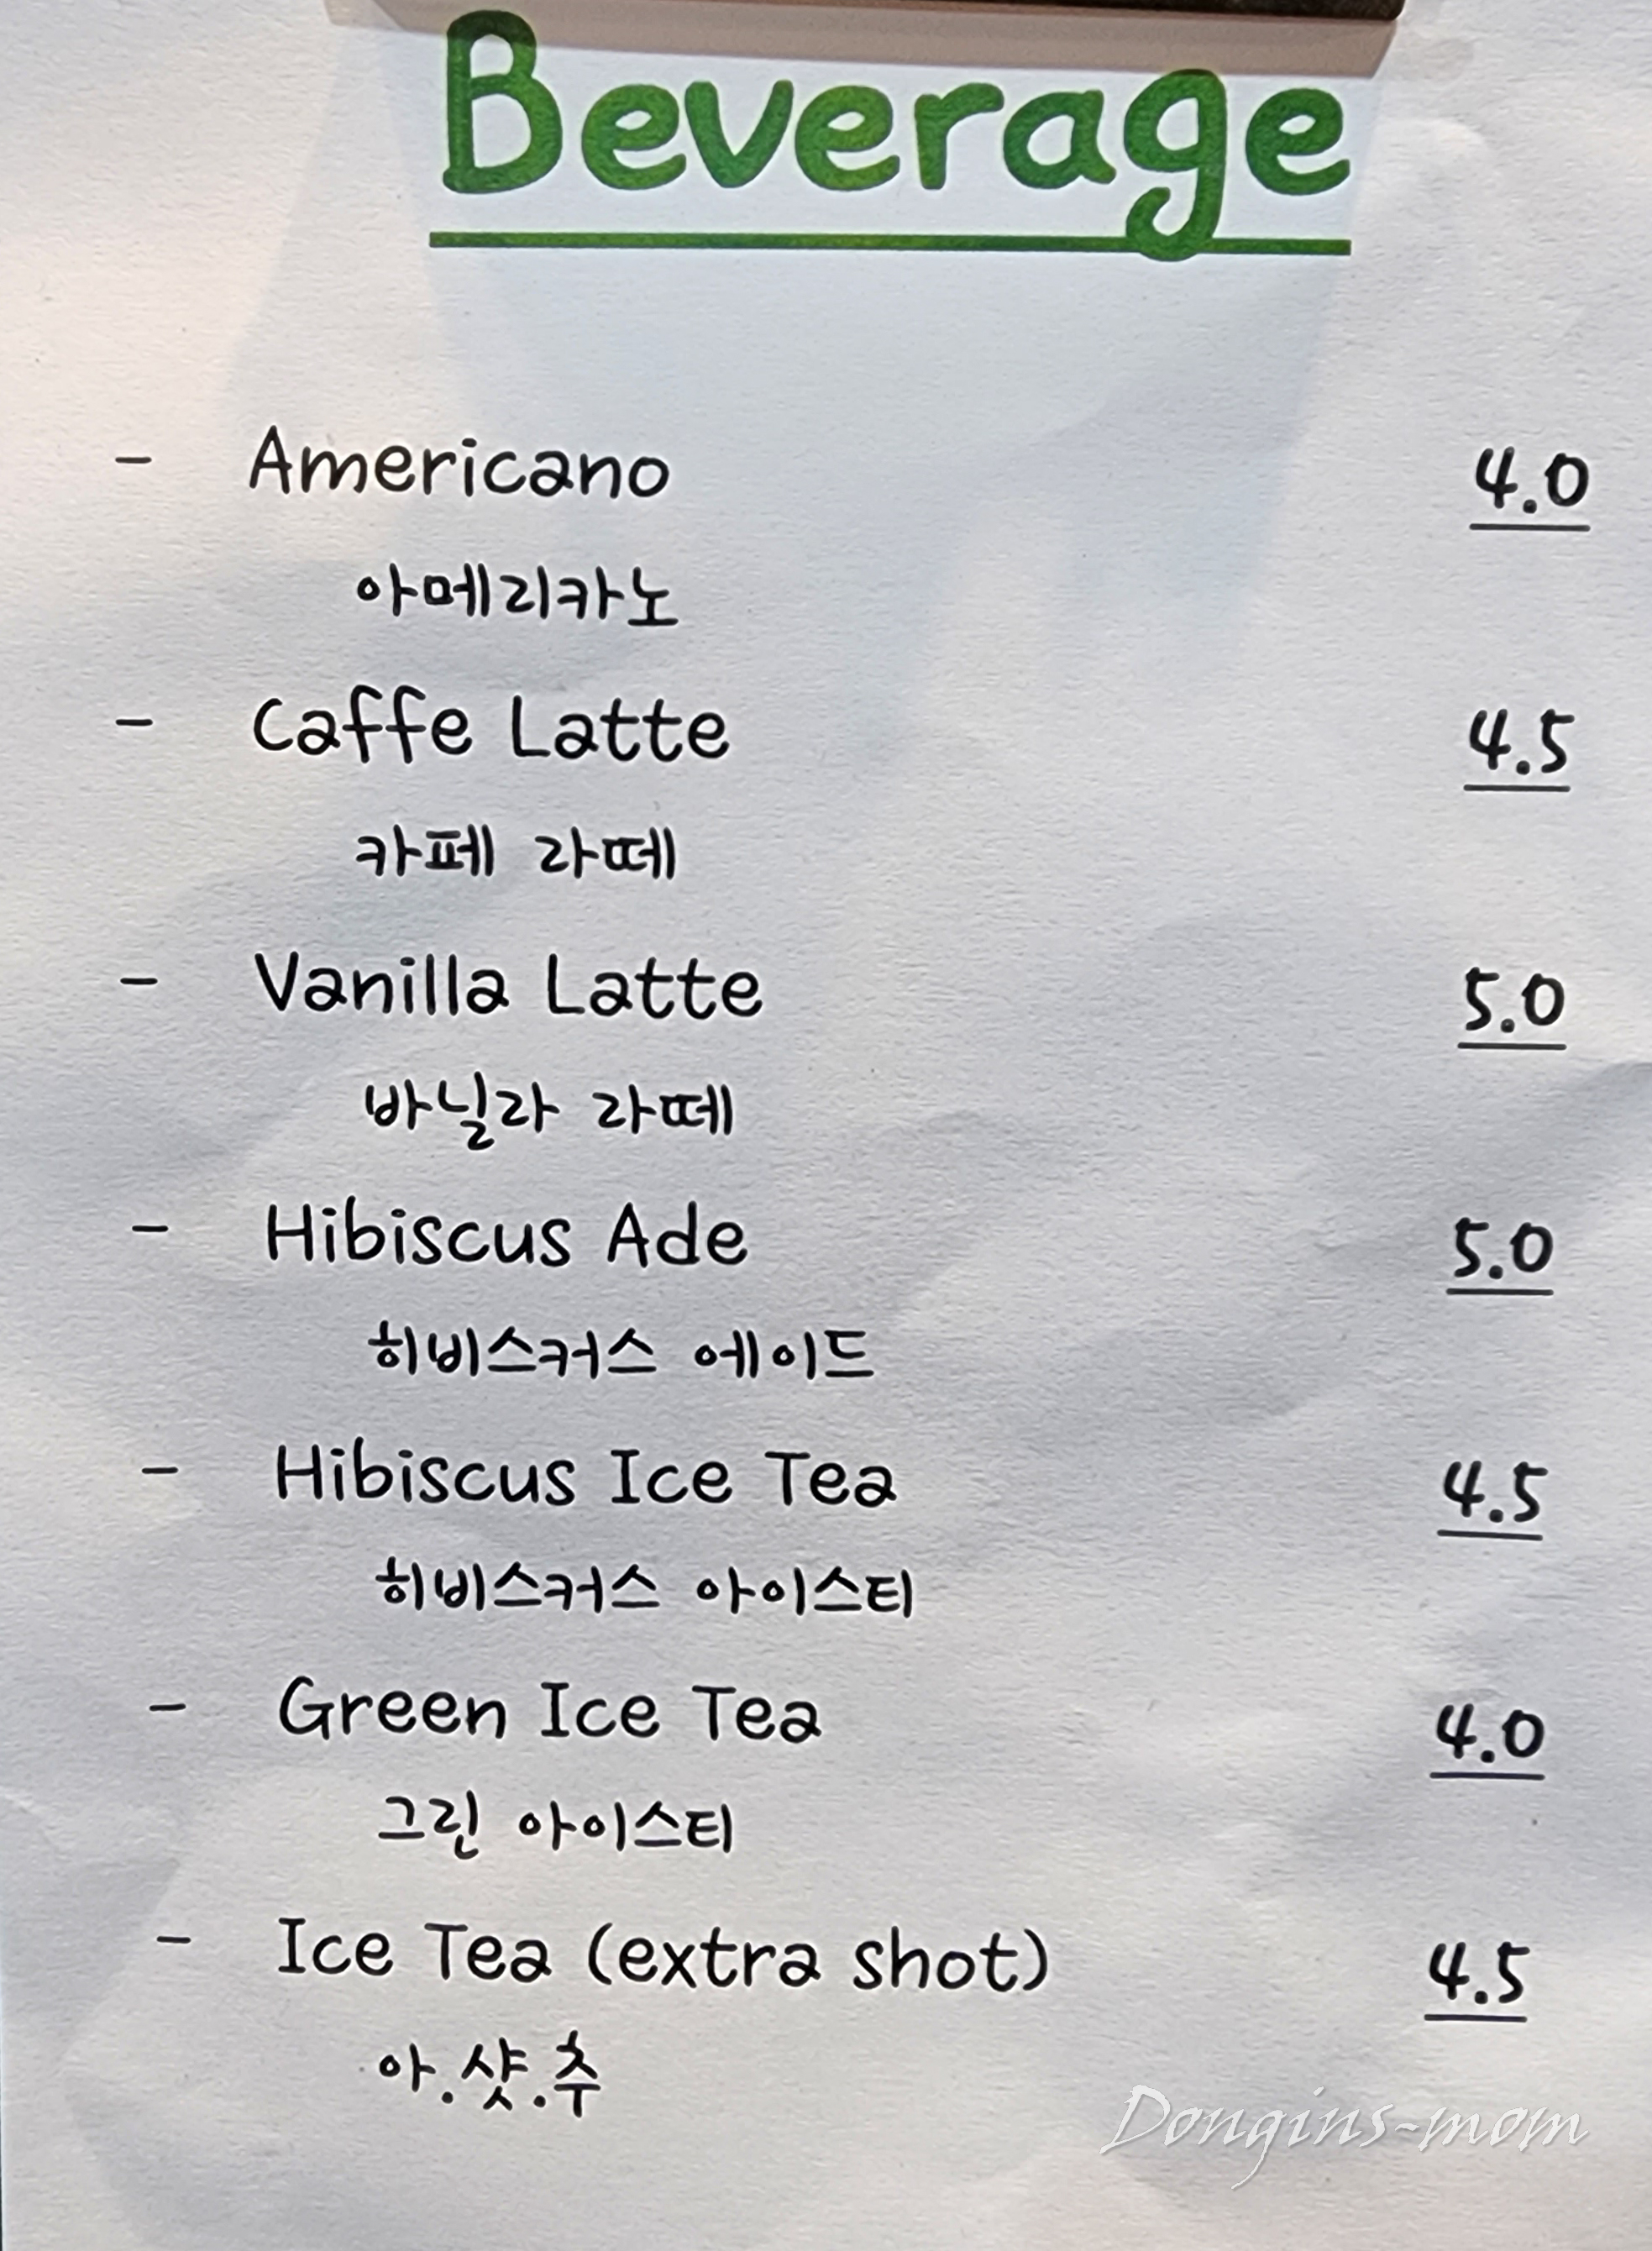 Beverage
- Americano 4.0
아메리카노
- Caffe Latte 4.5
카페 라떼
- Vanilla Latte 5.0
바닐라 라떼
- Hibiscus Ade 5.0
히비스커스 에이드
- Hibiscus Ice Tea 4.5
히비스커스 아이스티
- Green Ice Tea 4.0
그린 아이스티
- Ice Tea (extra shot) 4.5
아.샷.추
Dongins-mom